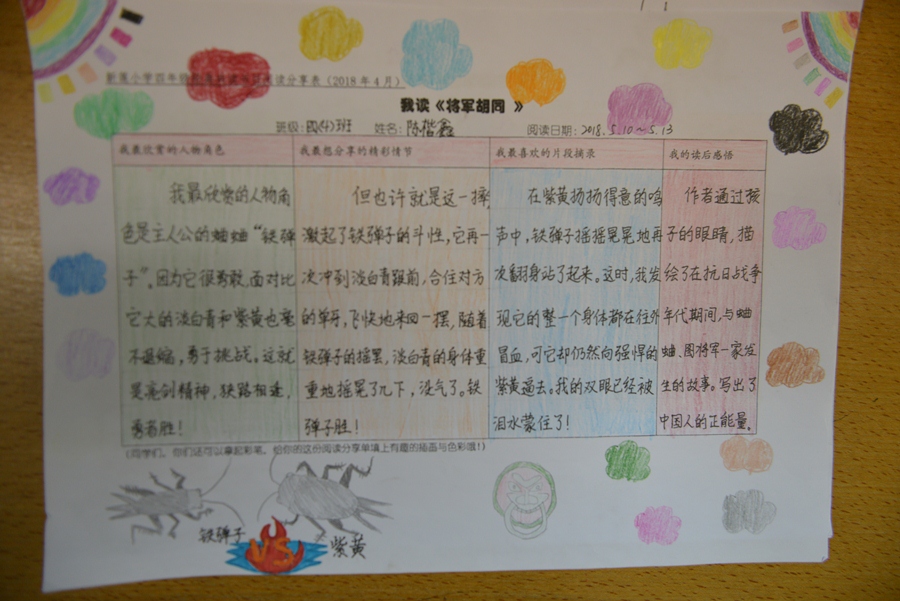 小学四年级
阅读分享表（2018年4月）
我读《将军胡同 》
班级：四(4)班 姓名：陈楷鑫 阅读日期：2018.5.10～5.13
我最欣赏的人物角色
我最欣赏的人物角
色是主人公的蛐蛐“铁弹
子”。因为它很勇敢，面对比
它大的淡白青和紫黄也毫
不退缩，勇于挑战。这就
是亮剑精神，狭路相逢，
勇者胜！
我最想分享的精彩情节
但也许就是这一摔
激起了铁弹子的斗性，它再一
次冲到淡白青跟前，合住对方
的单牙，飞快地来回一摆，随着
铁弹子的摇晃，淡白青的身体重
重地摇晃了几下，没气了。铁
弹子胜！
我最喜欢的片段摘录
在紫黄扬扬得意的鸣
声中，铁弹子摇摇晃晃地再
次翻身站了起来。这时，我发
现它的整一个身体都在往外
冒血，可它却仍然向强悍的
紫黄逼去。我的双眼已经被
泪水蒙住了！
我的读后感悟
作者通过孩
子的眼睛，描
绘了在抗日战争
年代期间，与蛐
蛐、图将军一家发
生的故事。写出了
中国人的正能量。
（同学们，你们还可以拿起彩笔，给你的这份阅读分享单填上有趣的插画与色彩哦！）
铁弹子
VS
紫黄